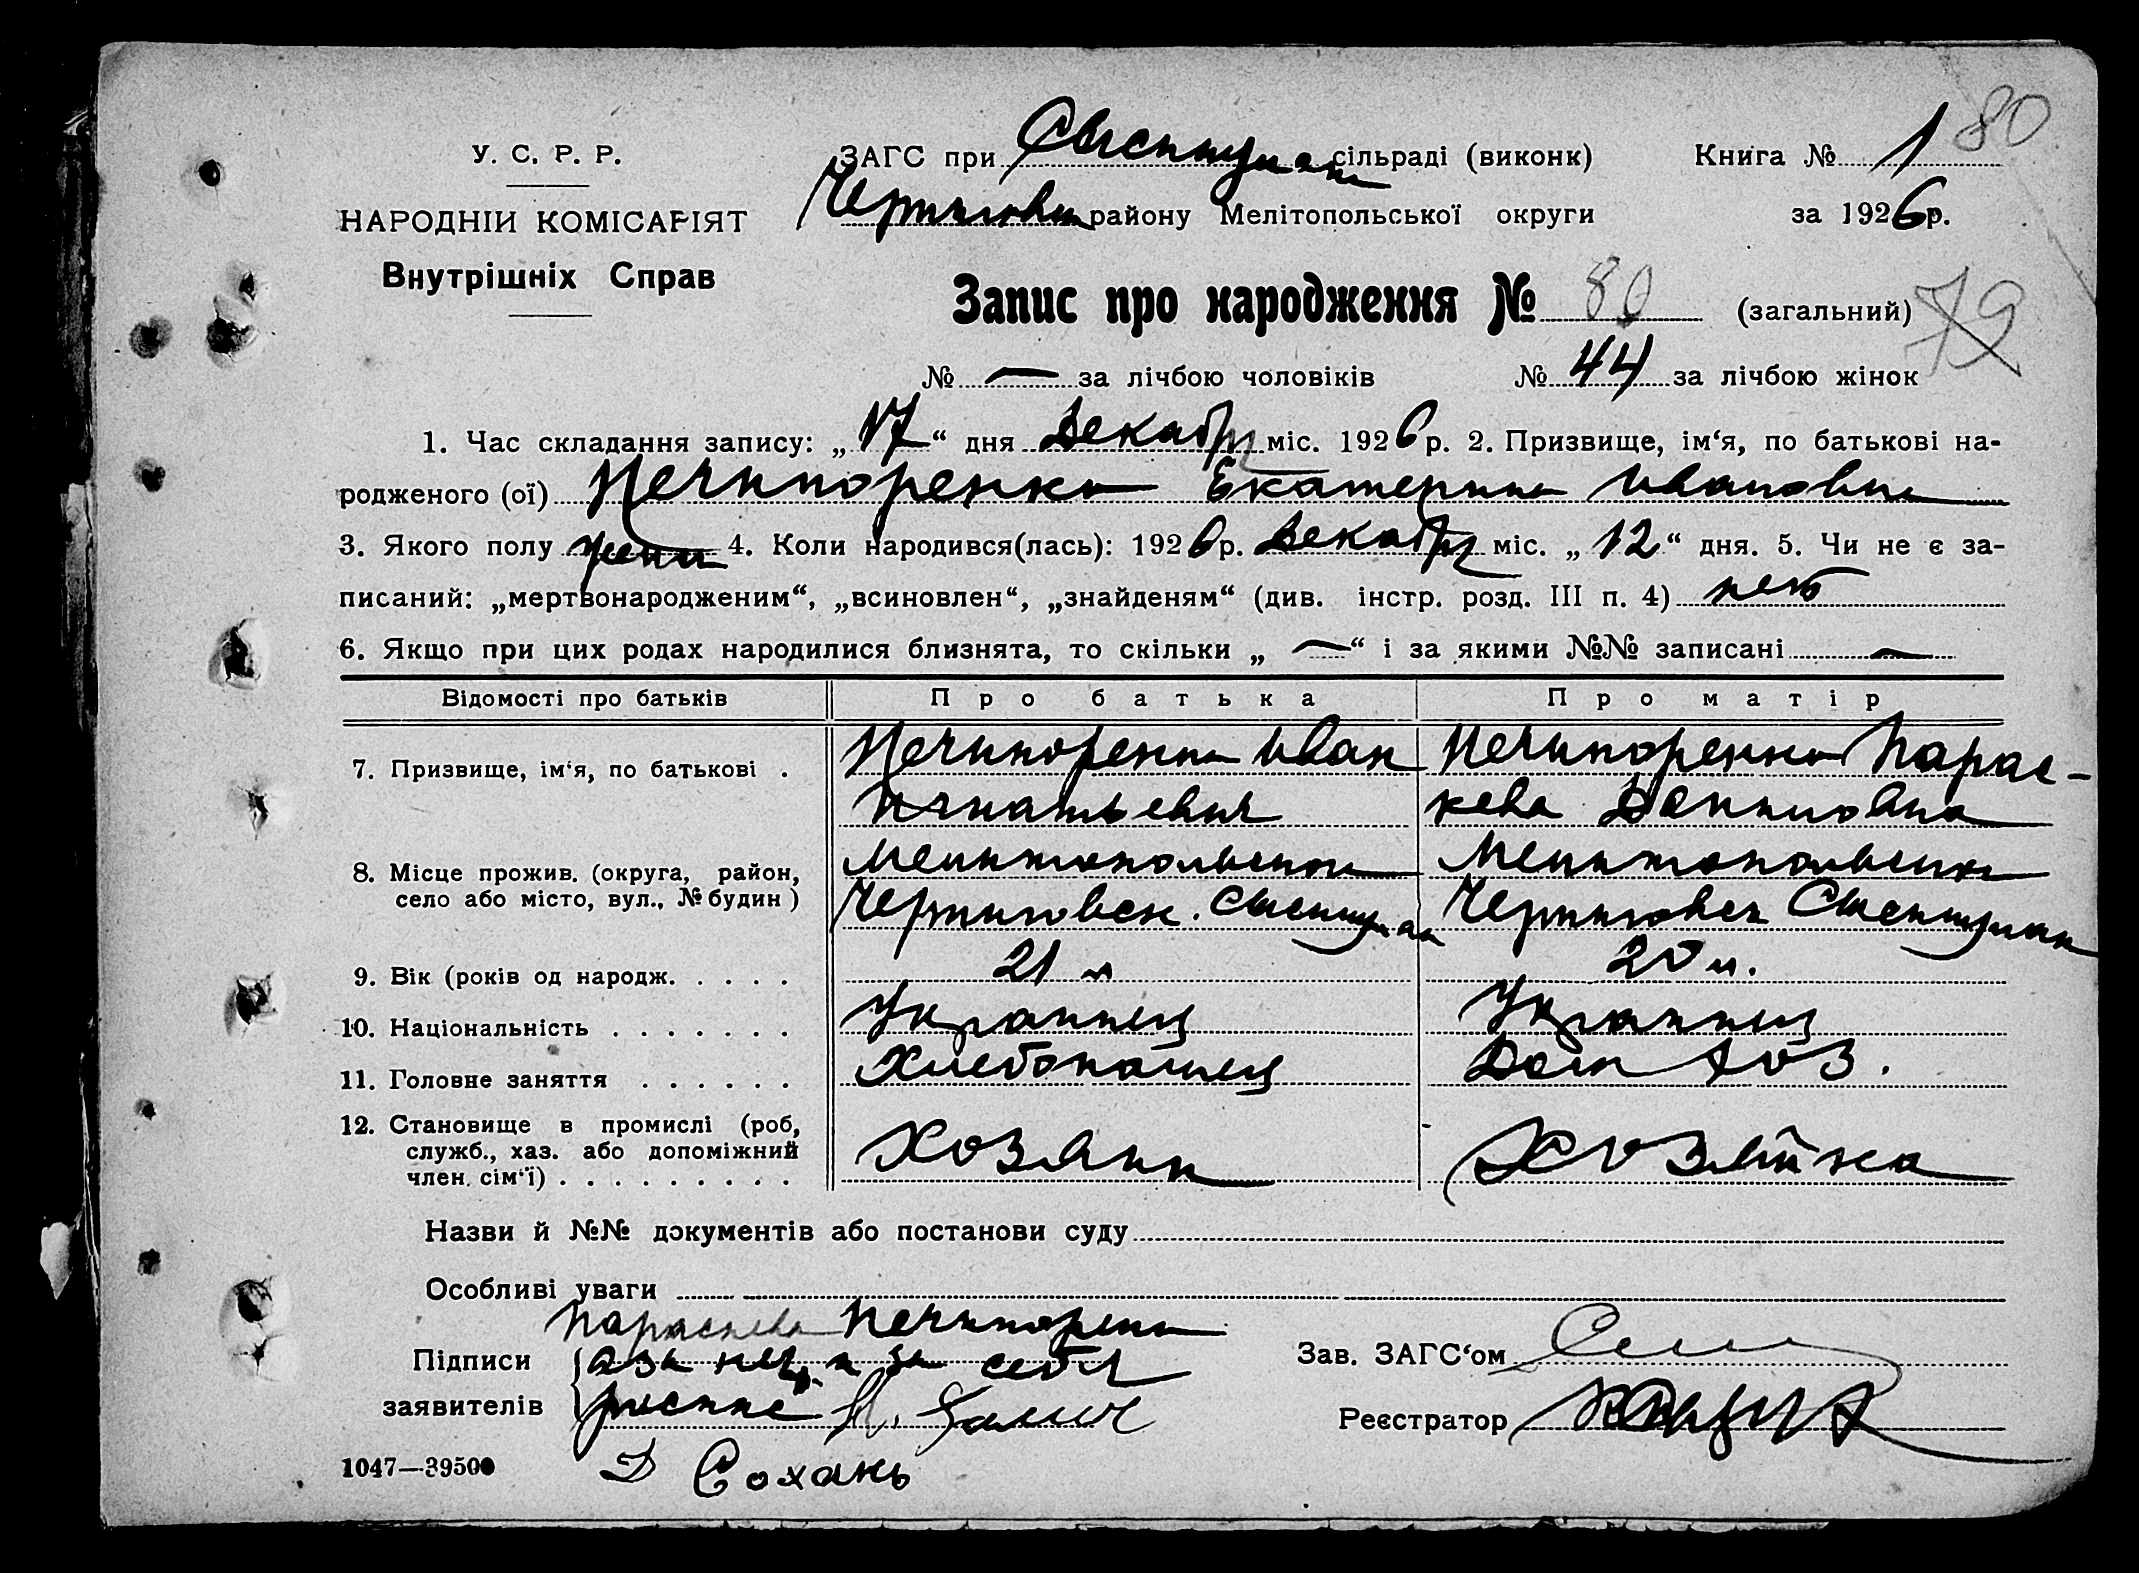 80
У. С. Р. Р.
ЗАГС при сільраді (виконк) Книга № 1
НАРОДНІИ КОМІСАРІЯТ
Чернигов району Мелітопольської округи за 1926р.
Внутрішніх Справ
Запис про народження № 80 (загальний) 79
№ — за лічбою чоловіків № 44 за лічбою жінок
1. Час складання запису: „17“ дня Декабр міс. 1926 р. 2. Призвище, ім‘я, по батькові на-
родженого (ої) Нечипоренко Екатерина Ивановна
3. Якого полу женс 4. Коли народився(лась): 1926 р. Декабр міс. „12“ дня. 5. Чи не є за-
писаний: „мертвонародженим“, „всиновлен“, „знайденям“ (див. інстр. розд. III п. 4) нет
6. Якщо при цих родах народилися близнята, то скільки „—“ і за якими №№ записані —
Відомості про батьків Про батька Про матір
7. Призвище, ім‘я, по батькові . Нечипоренко Иван Нечипоренко Парас-
Игнатьевич кева
8. Місце прожив. (округа, район, Мелитопольской Мелитопольской
село або місто, вул., № будин ) Черниговск. Черниговск
9. Вік (років од народж. . . . . 21 л 20 л.
10. Національність . . . . . . . Украинец Украинец
11. Головне заняття . . . . . . Хлебопашец Дом хоз.
12. Становище в промислі (роб,
служб., хаз. або допоміжний Хозяин Хозяйка
член. сім‘ї) . . . . . . . . .
Назви й №№ документів або постанови суду
Особливі уваги
Параскева Нечипоренко
Підписи а за нец. и за себя Зав. ЗАГС‘ом
заявителів Реєстратор
1047—39500 Д Сохань